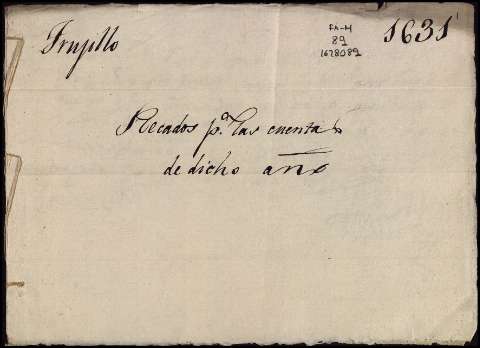 Trujillo
FA-M
89
1678089
1631
Recados pª las cuentas
de dicho año